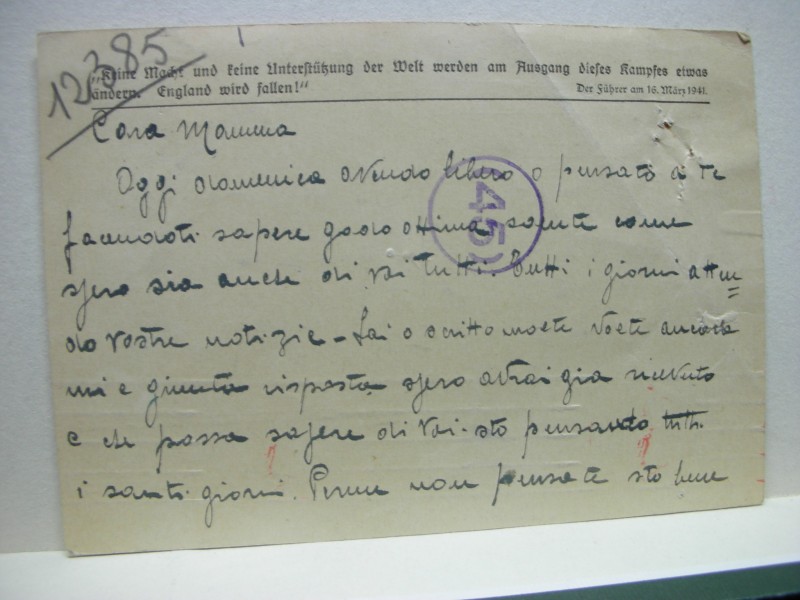 12385
„Keine Macht und keine Unterstützung der Welt werden am Ausgang dieses Kampfes etwas
ändern. England wird fallen!“ Der Führer am 16. März 1941.
Cara Mamma
Oggi domenica avendo libero o pensato a te
facendoti sapere godo ottima salute come
spero sia anche di voi tutti. Tutti i giorni atten
do vostre notizie - Lai o scritto molte volte ancora
mi e giunta risposta spero avrai gia ricevuto
e che possa sapere di voi. sto pensando tutti
i santi giorni. Per me non pensate sto bene
45